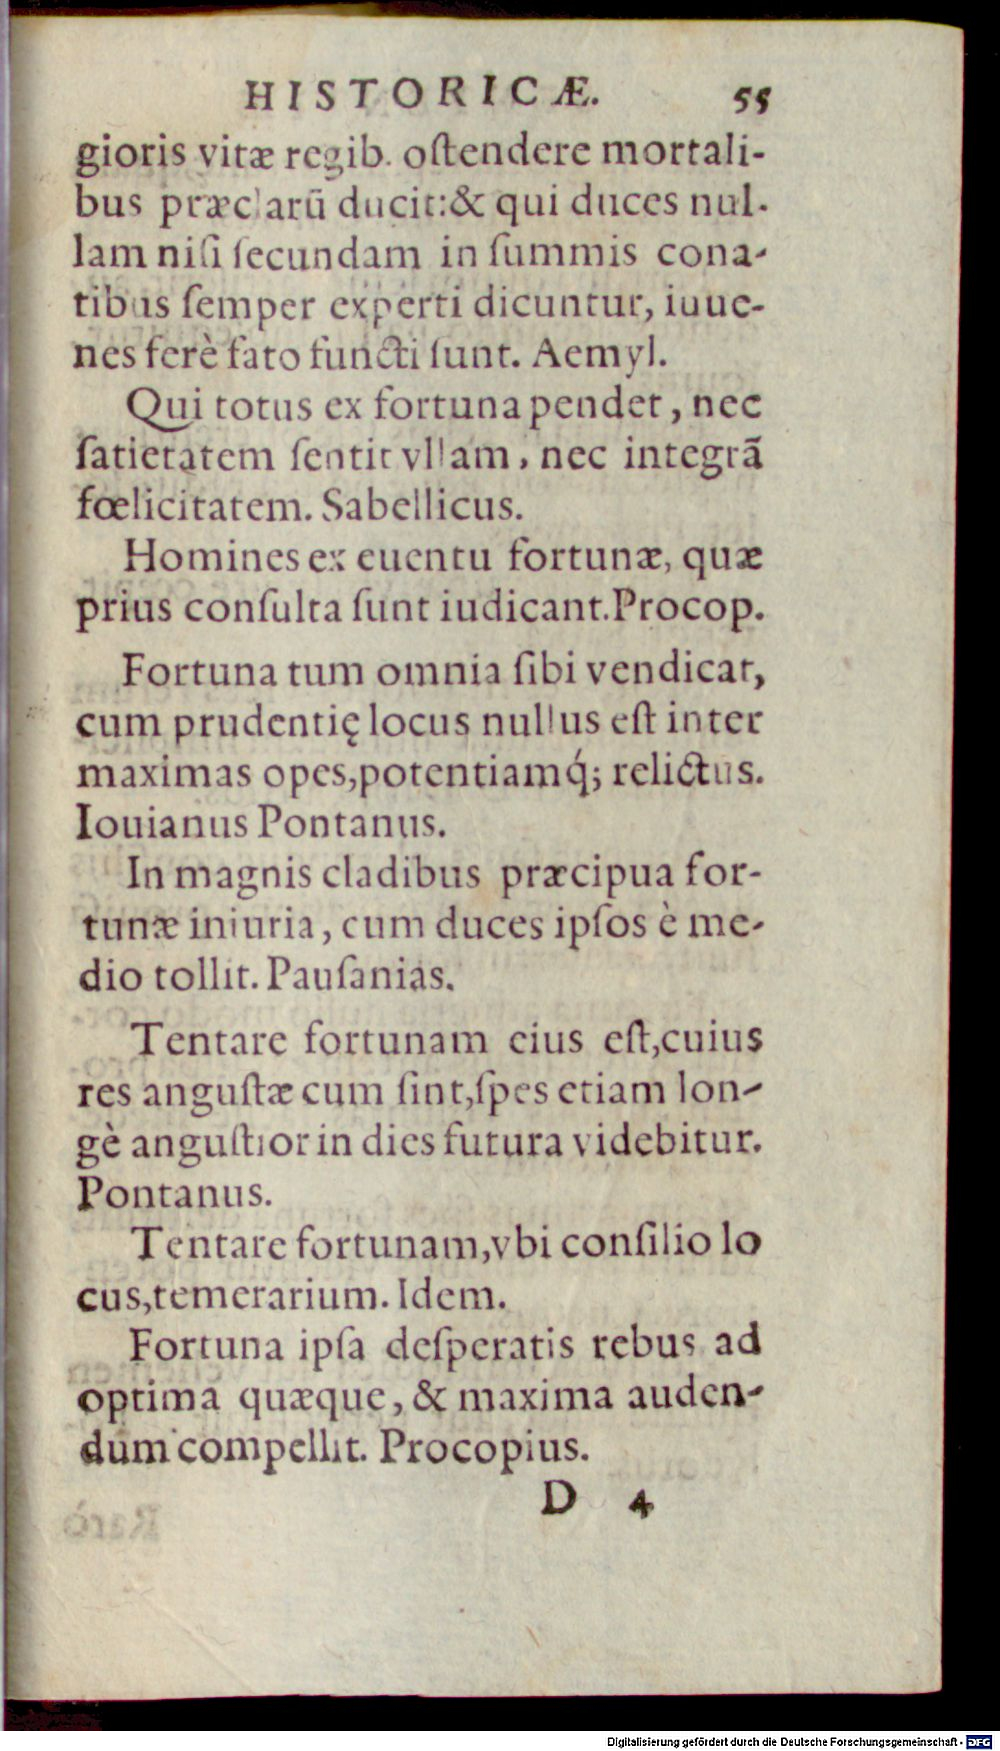 HISTORICÆ. 55
gioris vitæ regib. oſtendere mortali-
bus præclarū ducit:& qui duces nul-
lam niſi ſecundam in ſummis cona-
tibus ſemper experti dicuntur, iuue-
nes ferè fato functi ſunt. Aemyl.
Qui totus ex fortuna pendet, nec
ſatietatem ſentit vllam, nec integrã
fœlicitatem. Sabellicus.
Homines ex euentu fortunæ, quæ
prius conſulta ſunt iudicant.Procop.
Fortuna tum omnia ſibi vendicat,
cum prudentię locus nullus eſt inter
maximas opes,potentiamq́; relictus.
Iouianus Pontanus.
In magnis cladibus præcipua for-
tunæ iniuria, cum duces ipſos è me-
dio tollit. Pauſanias.
Tentare fortunam eius eſt,cuius
res anguſtæ cum ſint,ſpes etiam lon-
gè anguſtior in dies futura videbitur.
Pontanus.
Tentare fortunam,vbi conſilio lo
cus,temerarium. Idem.
Fortuna ipſa deſperatis rebus ad
optima quæque, & maxima auden-
dum compellit. Procopius.
D 4
Digitalisierung gefördert durch die Deutsche Forschungsgemeinschaft - DFG